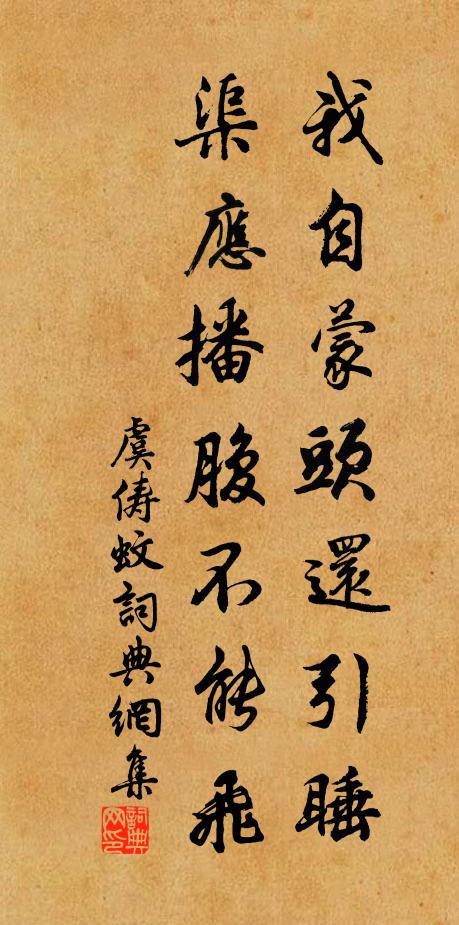 我自蒙頭還引睡
渠應播腹不能飛
虞儔蚊詞典網集
詞典网印